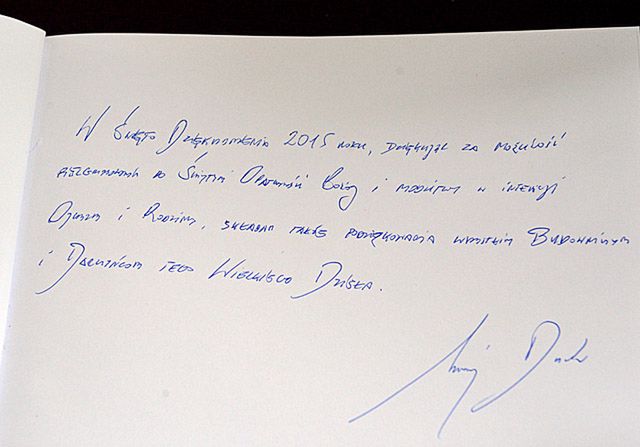 W Święto Dziękczynienia 2015 roku, dziękując za możliwość
pielgrzymowania do Świątyni Opatrzności Bożej i modlitwy w intencji
Ojczyzny i Rodziny, składam także podziękowania wszystkim Budowniczym
i Darczyńcom tego Wielkiego Dzieła.
Andrzej Duda